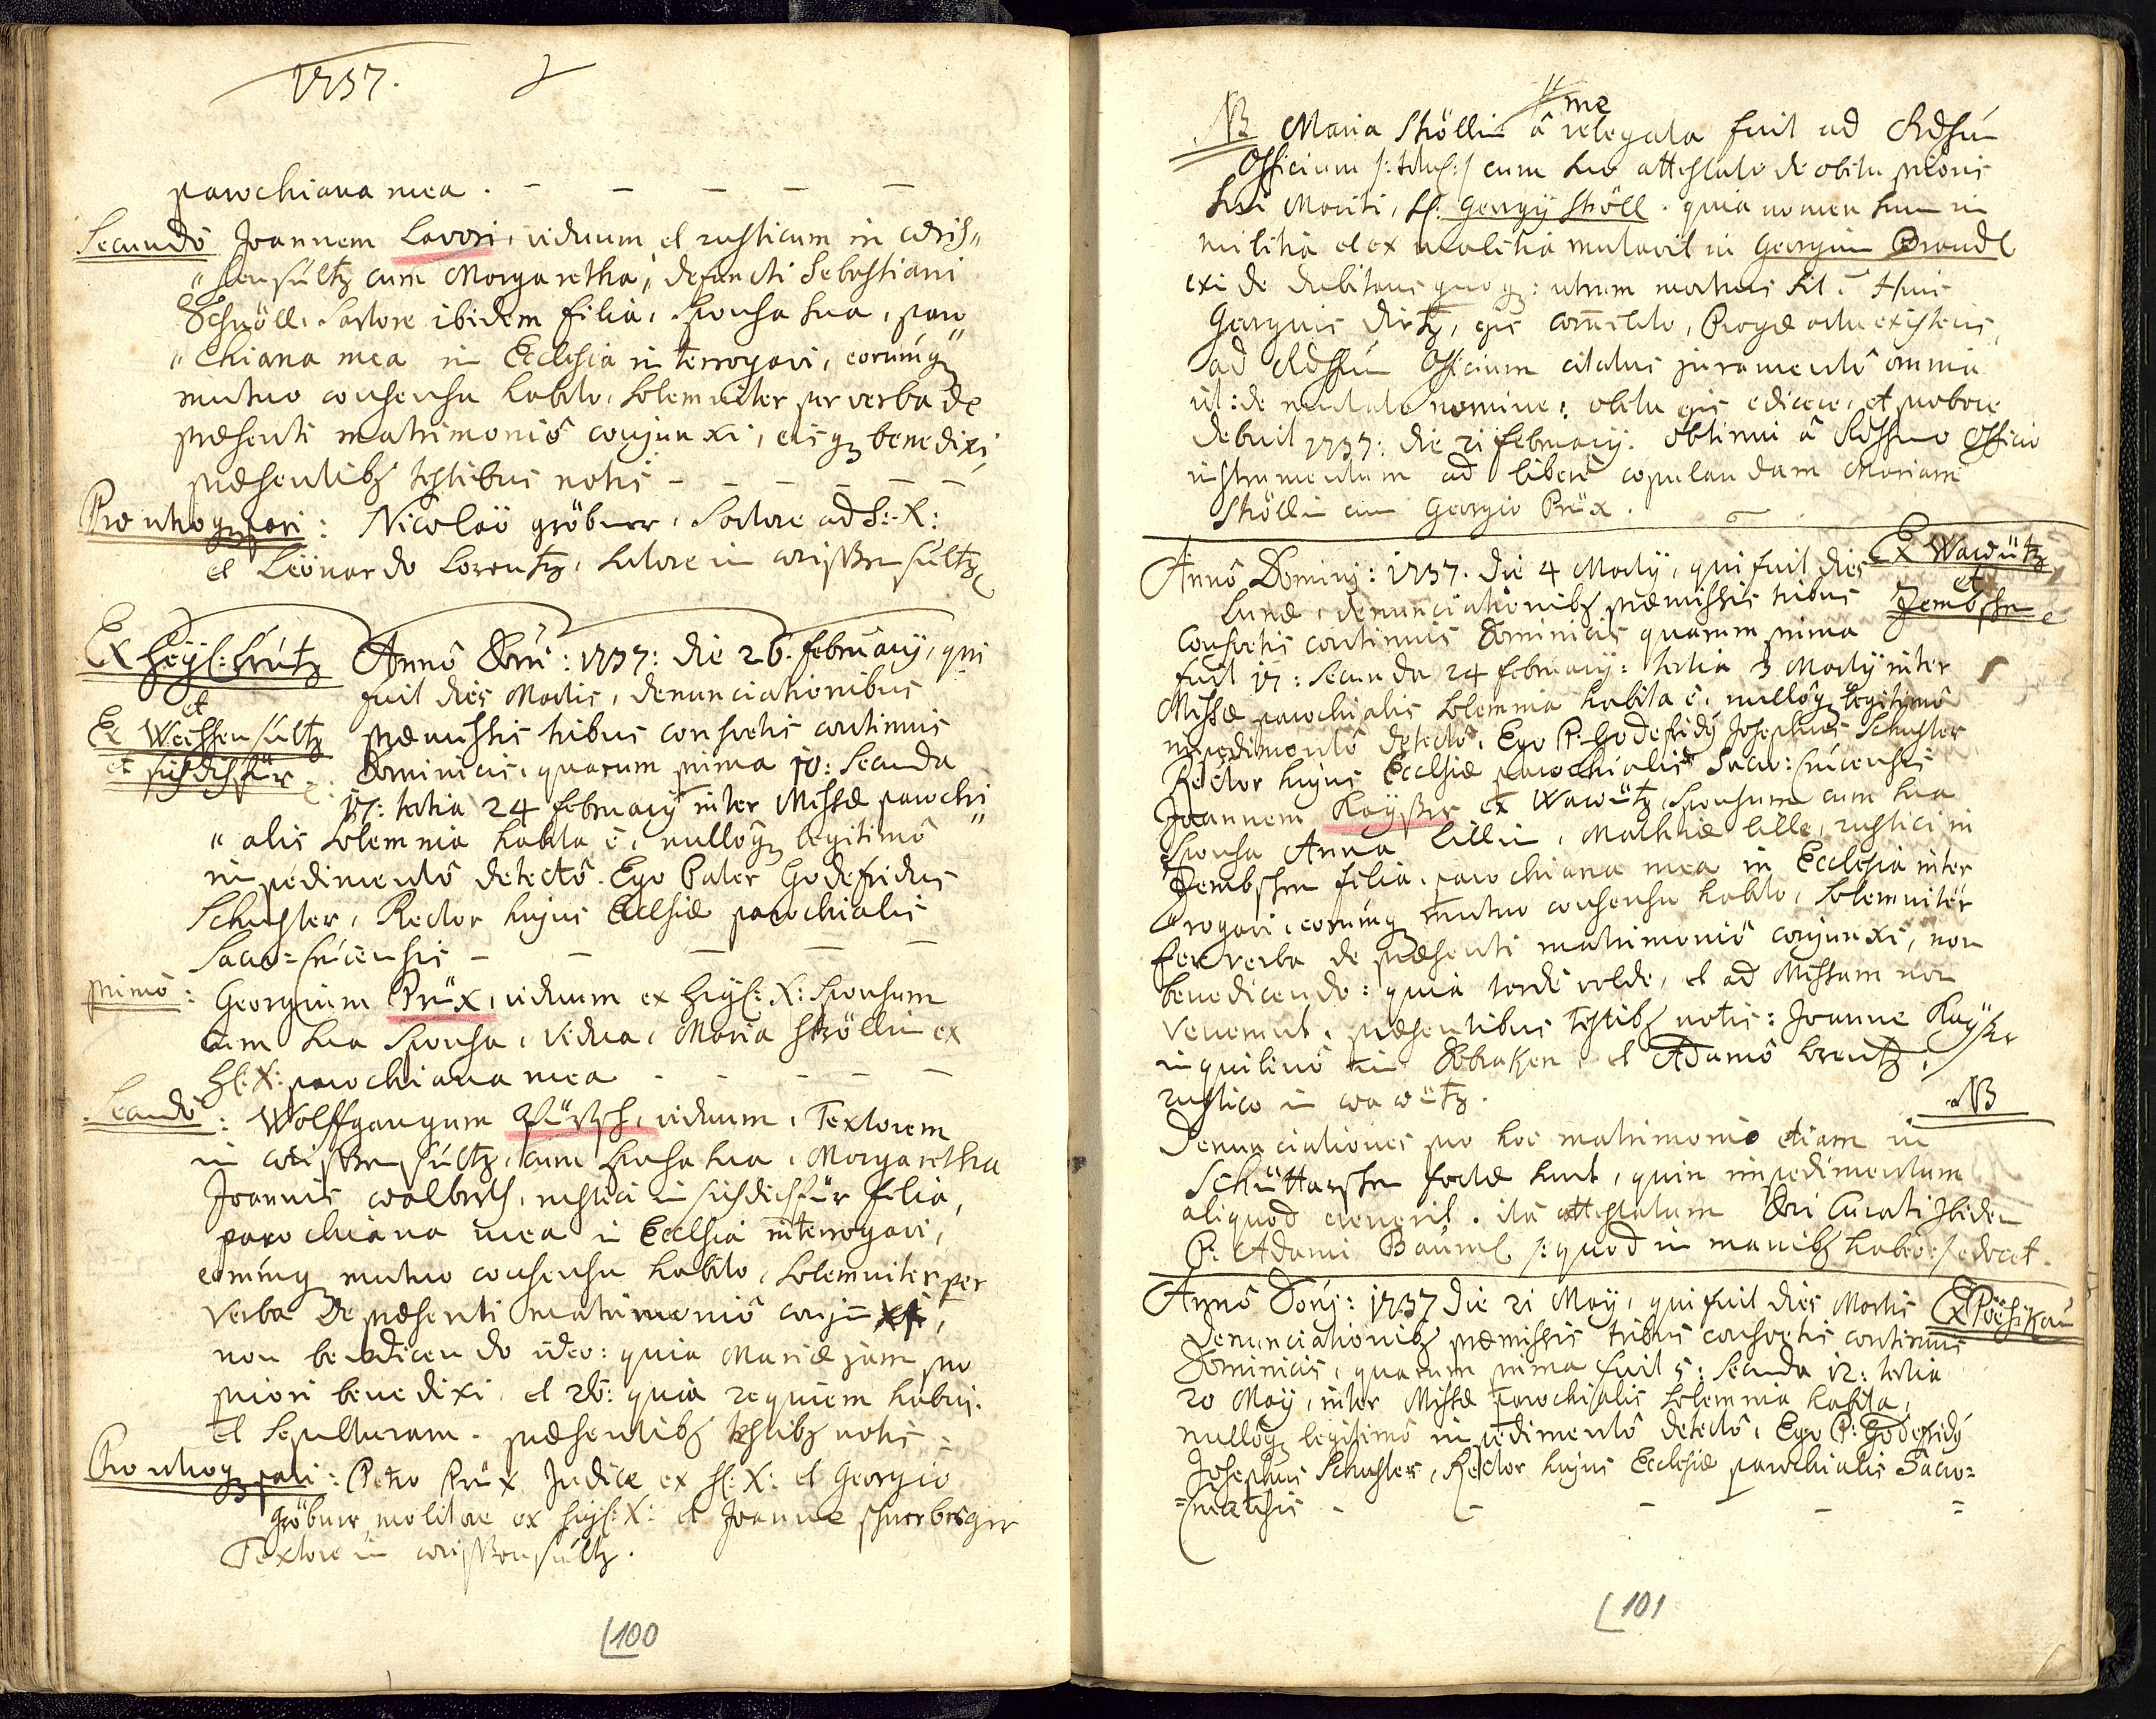 1737.
parochiana mea . - - - - -
Secundò Joannem Lavori, viduum et rusticum in Weis„
„sensultz cum Margaretha, defuncti Sebastiani
Schnöll, Sartore ibidem filia, Sponsa sua, paro„
„chiana mea in Ecclesia interrogavi, eorumq
mutuo consensu habito, solemniter per verba de
præsenti matrimoniô conjunxi, eisq benedixi,
præsentibq testibus notis - - - - -
Pro utroq pari: Nicolaö gröbner, Sartore ad S: X:
et Leonardo Lorentz, sutore in Weissensultz
Ex Heyl: Creutz
et
Ex Weissensultz
et
Annô Dni: 1737: die 26. february, qui
fuit dies Martis, denunciationibus
præmissis tribus consvetis continuis
Dominicis, quarum prima 10: Secunda
17: tertia 24 february inter Missæ parochi„
„alis solemnia habita ē, nullôq legitimô
impedimentô detectô. Ego Pater Godefridus
Schuster, Rector hujus Ecclesiæ parochialis
Sacro=Crucensis - - - -
primò: Georgium Prüx, viduum ex Heyl: X: Sponsum
cum sua Sponsa, vidua, Maria Ströllin ex
Hl: X: parochiana mea - - - - -
Secundò: Wolffgangum viduum, Textorem
in Weissensultz, cum Sponsa sua, Margaretha
Joannis rustici in filia,
parochiana mea in Ecclesia interrogavi,
eorumq mutuo consensu habito, solemniter per
verba de præsenti matrimoniô conjunxi,
non benedicendo ideo: quia Mariæ jam pro
priori benedixi, et 2dò: quia requiem habui
et Sepulturam. præsentibq testibq notis:
Pro utroq pari: Petro Prüx Judice ex Hl: X: et Georgio
Gröbner, molitore ex Heyl: X: et Joanne
Textore in Weissensultz.
100
NB Maria Ströllin â me relegata fuit ad
Officium /: titul: / cum suo attestato de obitu prioris
sui Mariti, Georgij Ströll. quia nomen suum in
militia et ex malitia mutavit in Georgium Brandl
exinde dubitans quoq: utrum mortuus sit? Huic
Georgius ejs Pragæ actu existens,
ad Officium citatus juramentô omnia
ut: de mutato nomine, obitu ejs edicere, et probare
debuit 1737: die 21 february. obtinui â Officio
instrumentum ad liberè copulandam Mariam
Ströllin cum Georgio Prüx.
Annô Dominj: 1737. die 4 Martij, qui fuit dies
Ex Wawütz
et
Lunæ, denunciationibq præmissis tribus
consvetis continuis Dominicis quarum prima
fuit 17: Secunda 24 february: tertia 3 Martij inter
Missæ parochialis solemnia habita ē, nullôq legitimô
impedimentô detectô, Ego P: Godefridq Josephus Schuster
Rector hujus Ecclesiæ parochialis Sacro=Crucensis
Joannem Kaysser ex Wawütz, Sponsum cum sua
Sponsa Anna Lillin, Mathiæ Lille, rustici in
filia, parochiana mea in Ecclesia inter„
rogavi, eorumq mutuo consensu habito, solemniter
per verba de præsenti matrimoniô conjunxi, non
benedicendo: quia tardè valde, et ad Missam non
venerunt, præsentibus testibq notis: Joanne Kaysser
inquilinô in Dobraken, et Adamô Lorentz,
rustico in Wawütz.
NB
Denunciationes pro hoc matrimonio etiam in
Schüttarschen factæ sunt, quin impedimentum
aliquod evenerit. ita attestatum Dni Curati Ibidem
P: Adami Bäuml /: quod in manibq habeo: / edocet.
Annô Donj: 1737 die 21 May, qui fuit dies Martis
Ex Pössikau
Denunciationibq præmissis tribus consvetis continuis
Dominicis, quarum prima fuit 5: Secunda 12: tertia
20 May, inter Missæ parochialis solemnia habita,
nullôq legitimô impedimentô detectô, Ego P: Godefridq
Josephus Schuster, Rector hujus Ecclesiæ parochialis Sacro=
=Crucensis - - - - =
101